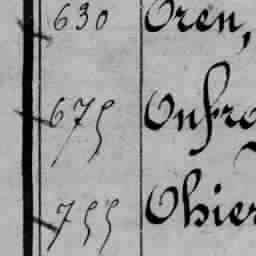 630 Oren,
675 Onfro
755 Ohier